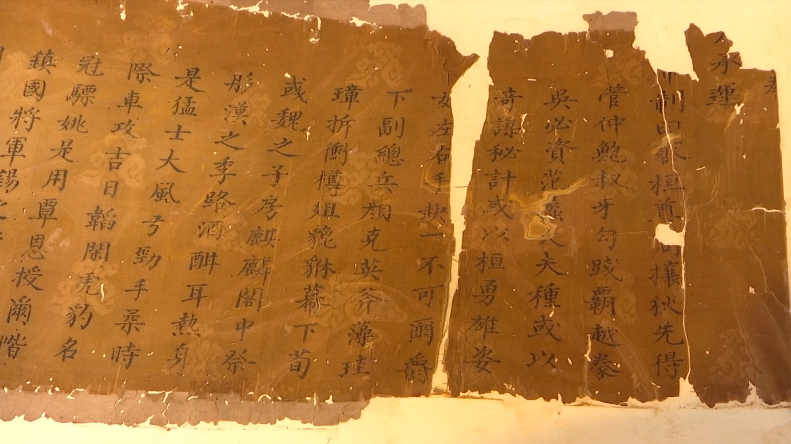 承運
制曰齊桓尊周攘狄先得
管仲鮑叔牙勾踐霸越豢
吳必資范蠡大夫種或以
奇謀秘計或以桓勇雄姿
左右手缺一不可爾爵
下副總兵顏克英斧藻珪
璋折衝樽俎貔貅幕下荀
彧魏之子房麒麟閣中祭
彤漢之季路酒酣耳熱身
是猛士大風兮勁手柔時
際車攻吉日韜閑虎豹名
冠驃姚是用覃恩授爾階
鎮國將軍錫之